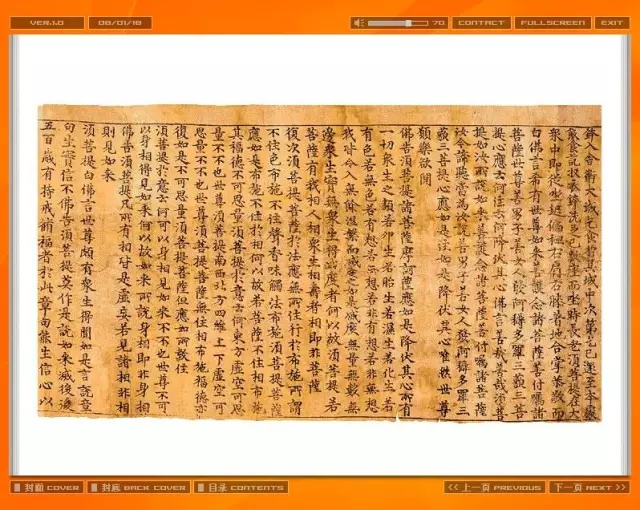 VER.1.0
08/01/18
70
CONTACT
FULLSCREEN
EXIT
鉢入舍衛大城乞食於其城中次第乞已還至本處
飯食訖收衣鉢洗足已敷座而坐時長老須菩提在大
衆中即從坐起偏袒右肩右膝著地合掌恭敬而
白佛言希有世尊如來善護念諸菩薩善付囑諸
菩薩世尊善男子善女人發阿耨多羅三藐三菩
提心應云何住云何降伏其心佛言善哉善哉須菩
提如汝所說如來善護念諸菩薩善付囑諸菩薩
汝今諦聽當爲汝說善男子善女人發阿耨多羅三
藐三菩提心應如是住如是降伏其心唯然世尊
願樂欲聞
佛告須菩提諸菩薩摩訶薩應如是降伏其心所有
一切衆生之類若卵生若胎生若濕生若化生若
有色若無色若有想若無想若非有想若非無想
我皆令入無餘涅槃而滅度之如是滅度無量無數無
邊衆生實無衆生得滅度者何以故須菩提若
菩薩有我相人相衆生相壽者相即非菩薩
復次須菩提菩薩於法應無所住行於布施所謂
不住色布施不住聲香味觸法布施須菩提菩薩
應如是布施不住於相何以故若菩薩不住相布施
其福德不可思量須菩提於意云何東方虛空可思
量不不也世尊須菩提南西北方四維上下虛空可
思量不不也世尊須菩提菩薩無住相布施福德亦
復如是不可思量須菩提菩薩但應如所教住
須菩提於意云何可以身相見如來不不也世尊不可
以身相得見如來何以故如來所說身相即非身相
佛告須菩提凡所有相皆是虛妄若見諸相非相
則見如來
須菩提白佛言世尊頗有衆生得聞如是言說章
句生實信不佛告須菩提莫作是說如來滅後後
五百歲有持戒脩福者於此章句能生信心以
封面 COVER
封底 BACK COVER
目录 CONTENTS
<< 上一页 PREVIOUS
下一页 NEXT >>